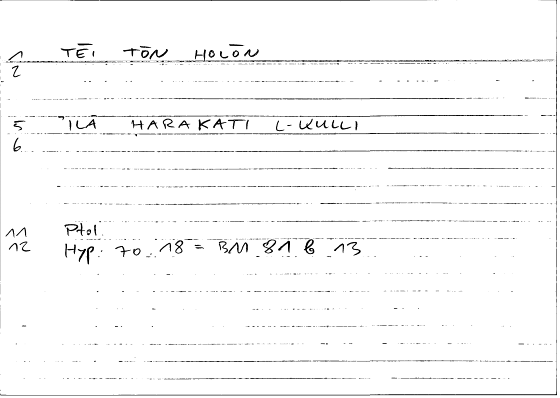 1 TĒI TŌN HOLŌN
2
5 ʾILĀ HARAKATI L-KULLI
6
11 Ptol
12 Hyp. 70 18 = BM 81 b 13